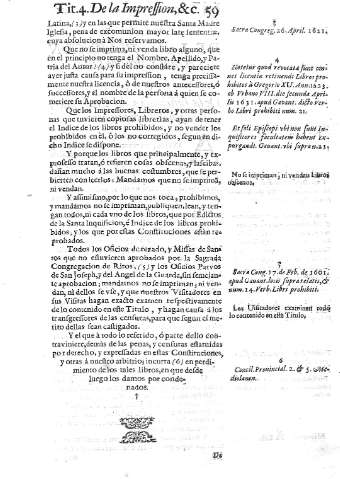 Tit.4. De la Impression, &c. 59
Latina, (3) y en las que permite nuestra Santa Madre
Iglesia, pena de excomunion mayor latæ sententiæ,
cuya absolucion à Nos reservamos.
Que no se imprima, ni venda libro alguno, que
en el principio no tenga el Nombre, Apellido, y Pa-
tria del Autor: (4) y si dèl no constare, y pareciere
aver justa causa para su impression, tenga precissa-
mente nuestra licencia, ò de nuestros antecessores, ò
successores, y el nombre de la persona à quien se co-
metiere su Aprobacion.
Que los Impressores, Libreros, y otras perso-
nas que tuvieren copiosas librerias, ayan de tener
el Indice de los libros prohibidos, y no vender los
prohibidos en èl, ò los no corregidos, segun en di-
cho Indice se dispone.
Y porque los libros que principalmente, y ex
professo tratan, ò refieren cosas obscenas, y lascibas,
dañan mucho à las buenas costumbres, que se per-
vierten con leerlos: Mandamos que no se imprimã,
ni vendan.
Y assimismo, por lo que nos toca, prohibimos,
y mandamos no se impriman, publiquen, lean, y ten-
gan todos, ni cada uno de los libros, que por Edictos
de la Santa Inquisicion, è Indice de los libros prohibi-
dos, y los que por estas Constituciones estàn re-
probados.
Todos los Oficios de rezado, y Missas de San-
tos que no estuvieren aprobados por la Sagrada
Congregacion de Ritos, (5) y los Oficios Parvos
de San Joseph, y del Angel de la Guarda, sin semejan-
te aprobacion; mandamos no se impriman, ni ven-
dan, ni dellos se use, y que nuestros Visitadores en
sus Visitas hagan exacto examen respectivamente
de lo contenido en este Titulo, y hagan causa à los
transgressores de las censuras, para que segun el me-
rito dellas sean castigados.
Y el que à todo lo referido, ò parte dello con-
traviniere, demàs de las penas, y censuras estatuidas
por derecho, y expressadas en estas Constituciones,
y otras à nuestro arbitrio; incurra (6) en perdi-
miento de los tales libros, en que desde
luego los damos por conde-
nados.
3
Sacra Congreg. 26. April. 1621.
4
No se impriman, ni vendan libros
obscenos.
5
Sacra Cong. 17. de Feb. de 1601.
Los Visitadores examinen todo
lo contenido en este Titulo.
6
Concil. Provincial. 2. & 5. Me-
diolanen.